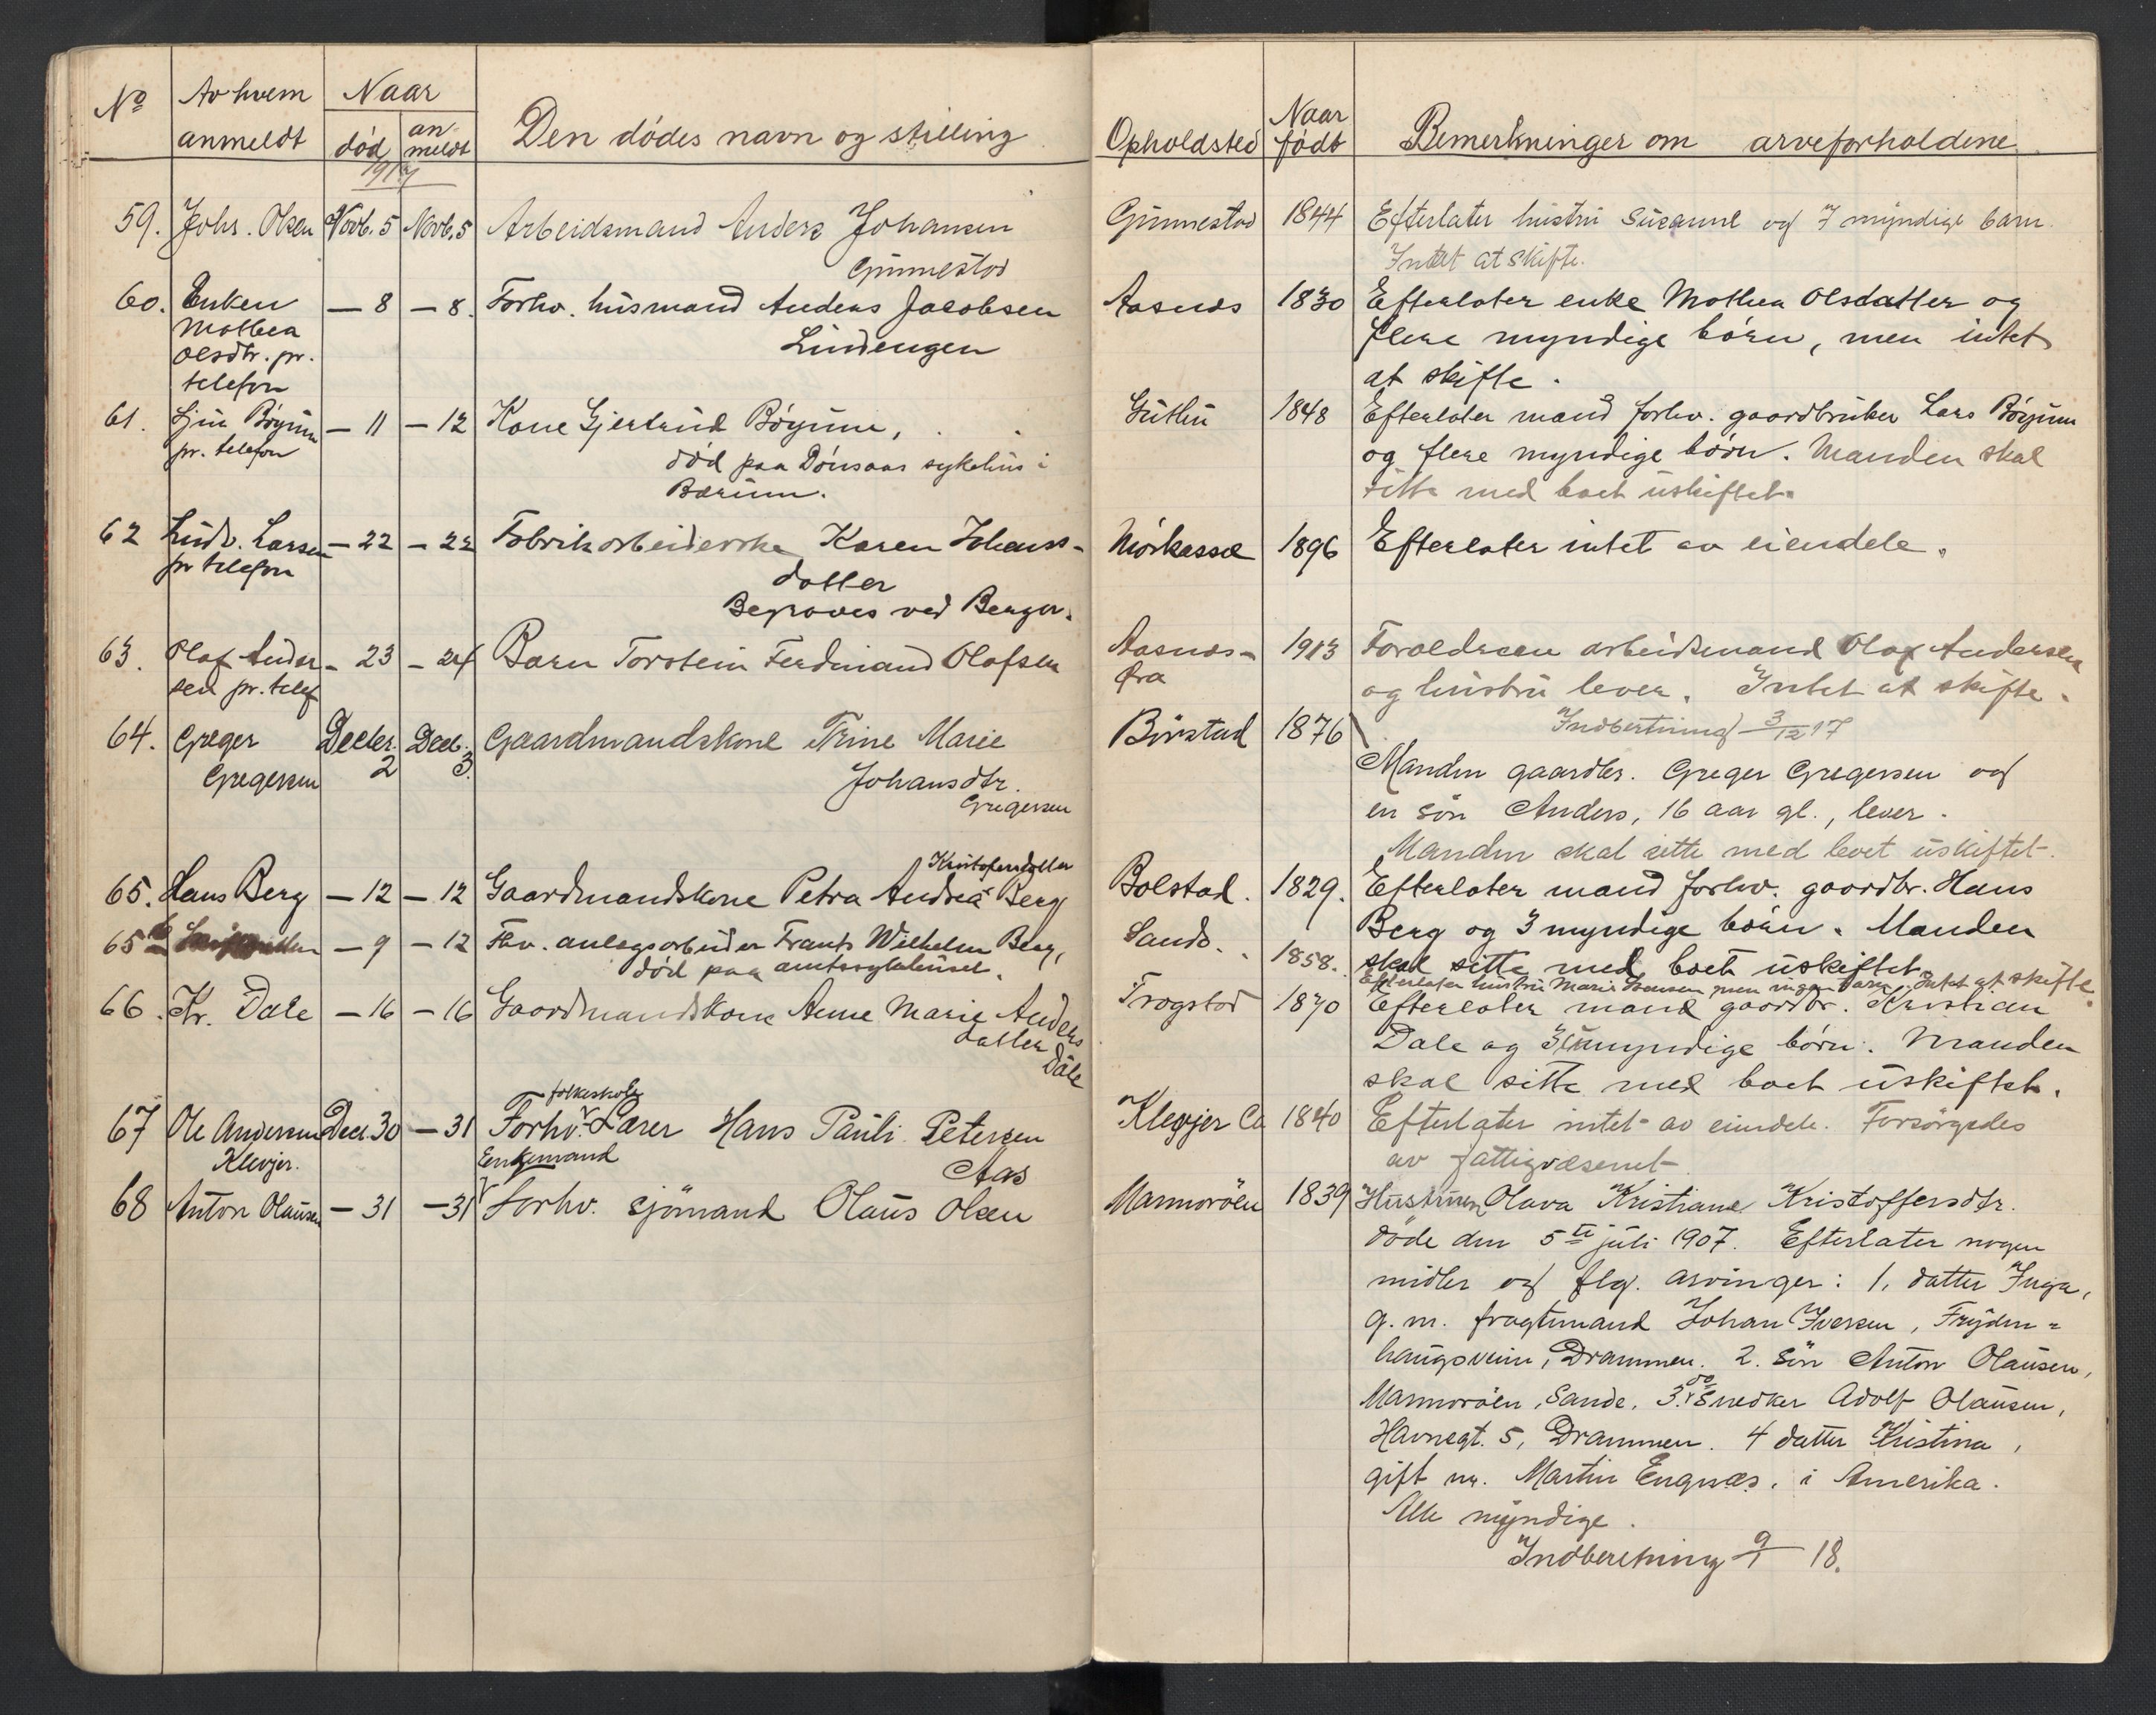 No
Av hvem
anmeldt
Naar
død
an
meldt
Den dødes navn og stilling
1917
59. Johs. Olsen Novb. 5 Novb. 5 Arbeidsmand Anders Johansen
Gunnestad
60. Enken — 8 — 8. Forhv. husmand Anders Jacobsen
Mathea
Olsdtr. pr.
Lindengen
telefon
61. Bøyum — 11 — 12 Kone Gjertrud Bøyum,
pr. telefon
død paa sykehus i
Bærum.
62 Ludv. Larsen — 22 — 22 Fabrikarbeiderske Karen Johans-
pr telefon
datter
Begraves ved Berger.
63. Olaf Ander- — 23 — 24 Barn Torstein Ferdinand Olafsen
sen pr. telef
64. Greger Decbr. 2 Decb. 3. Gaardmandskone Trine Marie
Gregersen
Johansdtr.
Gregersen
Kristofersdatter
65. Hans Berg — 12 — 12 Gaardmandskone Petra Andrea Berg
65 b — 9 — 12 Fhv. anlegsarbeider Frants Wilhelm Berg,
død paa amtssykehuset.
66. Kr. Dale — 16 — 16 Gaardmandskone Anne Marie Anders
datter
Dale
folkeskole
67 Ole Andersen Decb. 30 — 31 Forhv. Lærer Hans Pauli Petersen
Klevjer.
Enkemand
Aas
68 Anton Olausen — 31 — 31 Forhv. sjömand Olaus Olsen
Opholdsted
Naar
født
Bemerkninger om arveforholdene
Gunnestad 1844 Efterlater hustru Susanne og 7 myndige barn.
Intet at skifte.
Aasnes 1830 Efterlater enke Mathea Olsdatter og
flere myndige børn, men intet
at skifte.
1848 Efterlater mand forhv. gaardbruker Lars Bøyum
og flere myndige børn. Manden skal
sitte med boet uskiftet.
1896 Efterlater intet av eiendele.
Aasnes- 1913 Forældrene arbeidsmand Olaf Andersen
øra
og hustru lever. Intet at skifte.
Börstad 1876 Indberetning 3/12 17
Manden gaardbr. Greger Gregersen og
en sön Anders, 16 aar gl., lever.
Manden skal sitte med boet uskiftet.
Bolstad. 1829. Efterlater mand forhv. gaardbr. Hans
Berg og 3 myndige børn. Manden
Sande. 1858. skal sitte med boet uskiftet.
Efterlater hustru Marie men ingen barn. Intet at skifte.
Trogstad 1870 Efterlater mand gaardbr. Kristian
Dale og 3 umyndige børn. Manden
skal sitte med boet uskiftet.
Klevjer 1840 Efterlater intet av eiendele. Forsörgedes
av fattigvæsenet
Mannoröen 1839 Hustruen Olava Kristiane Kristoffersdtr.
döde den 5te juli 1907. Efterlater nogen
midler og flg. arvinger: 1. datter Inga,
g. m. fragtemand Johan Iversen, Fryden-
haugsveien, Drammen. 2. sön Anton Olausen,
Mannoröen, Sande. 3. do snedker Adolf Olausen,
Havnegt. 5, Drammen. 4 datter Kristina,
gift m. Martin Engnæs, i Amerika.
Alle myndige.
Indberetning 9/1 18.